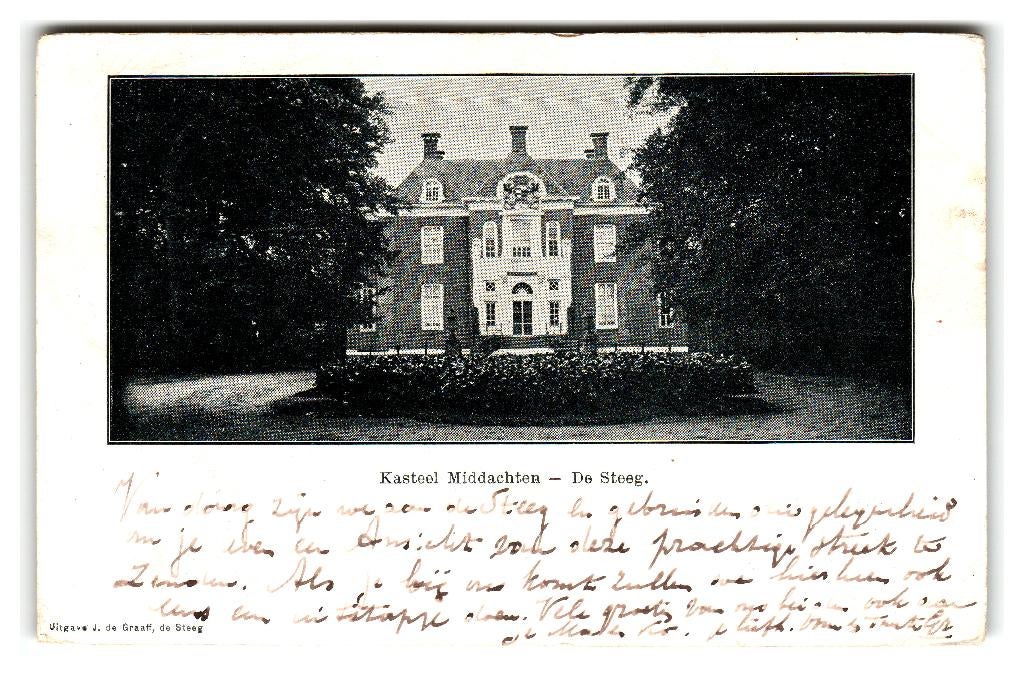 Kasteel Middachten — De Steeg.
Van daag zijn we aan de Steeg en gebruiken gelegenheid
om je even een ansicht van deze prachtige streek te
Zenden. Als je bij ons komt zullen we hierheen ook
eens een uitstapje doen. Vele groeten van ons beiden ook aan
je
Uitgave J. de Graaff, de Steeg